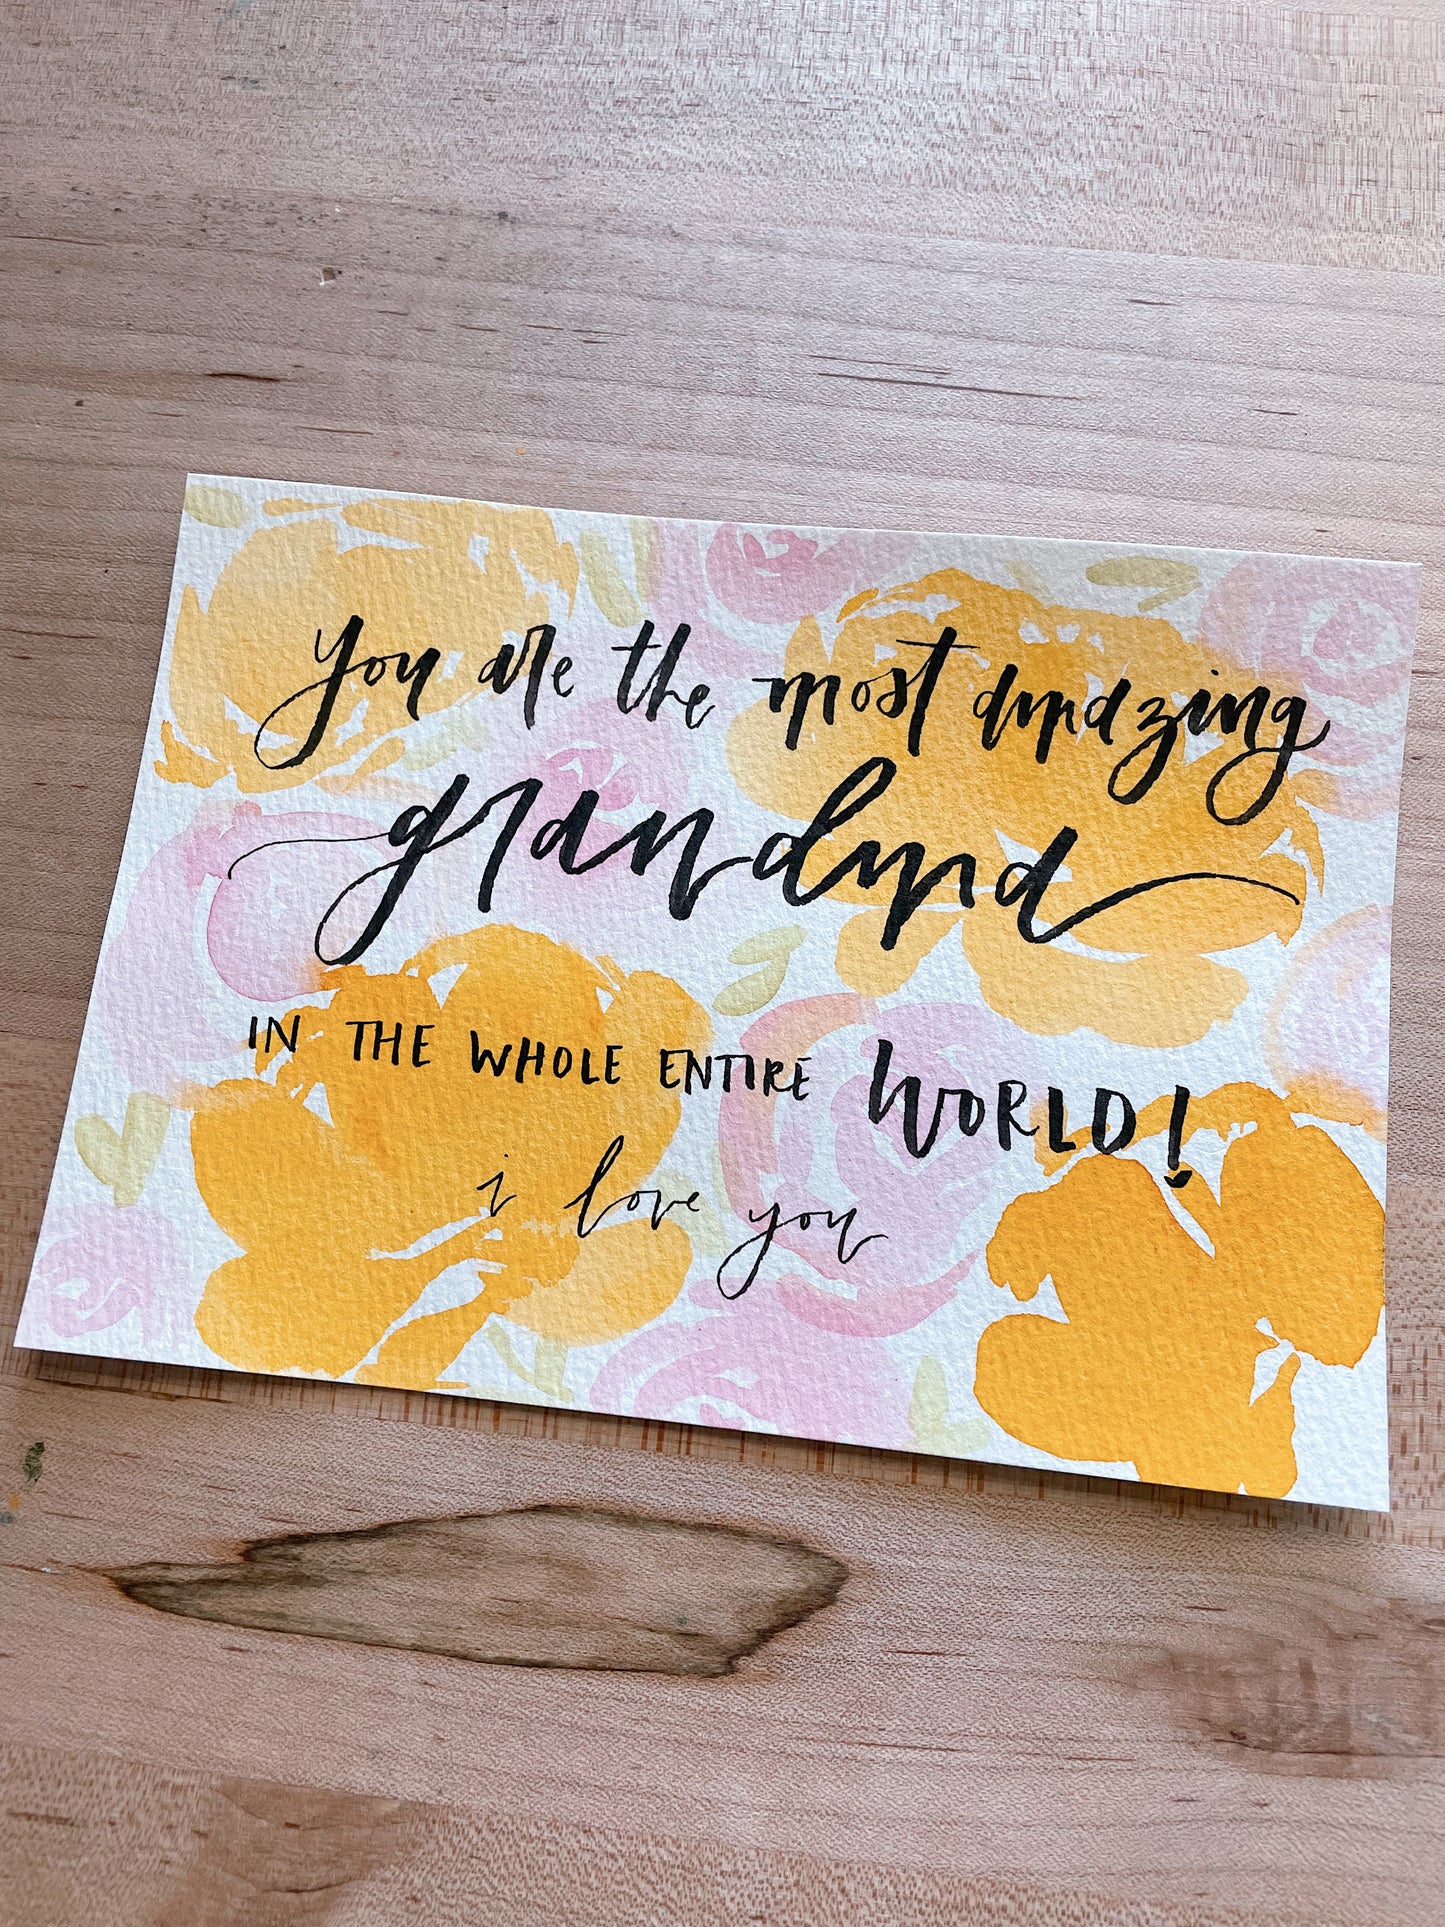 you are the most amazing
grandma
IN THE WHOLE ENTIRE WORLD!
i love you